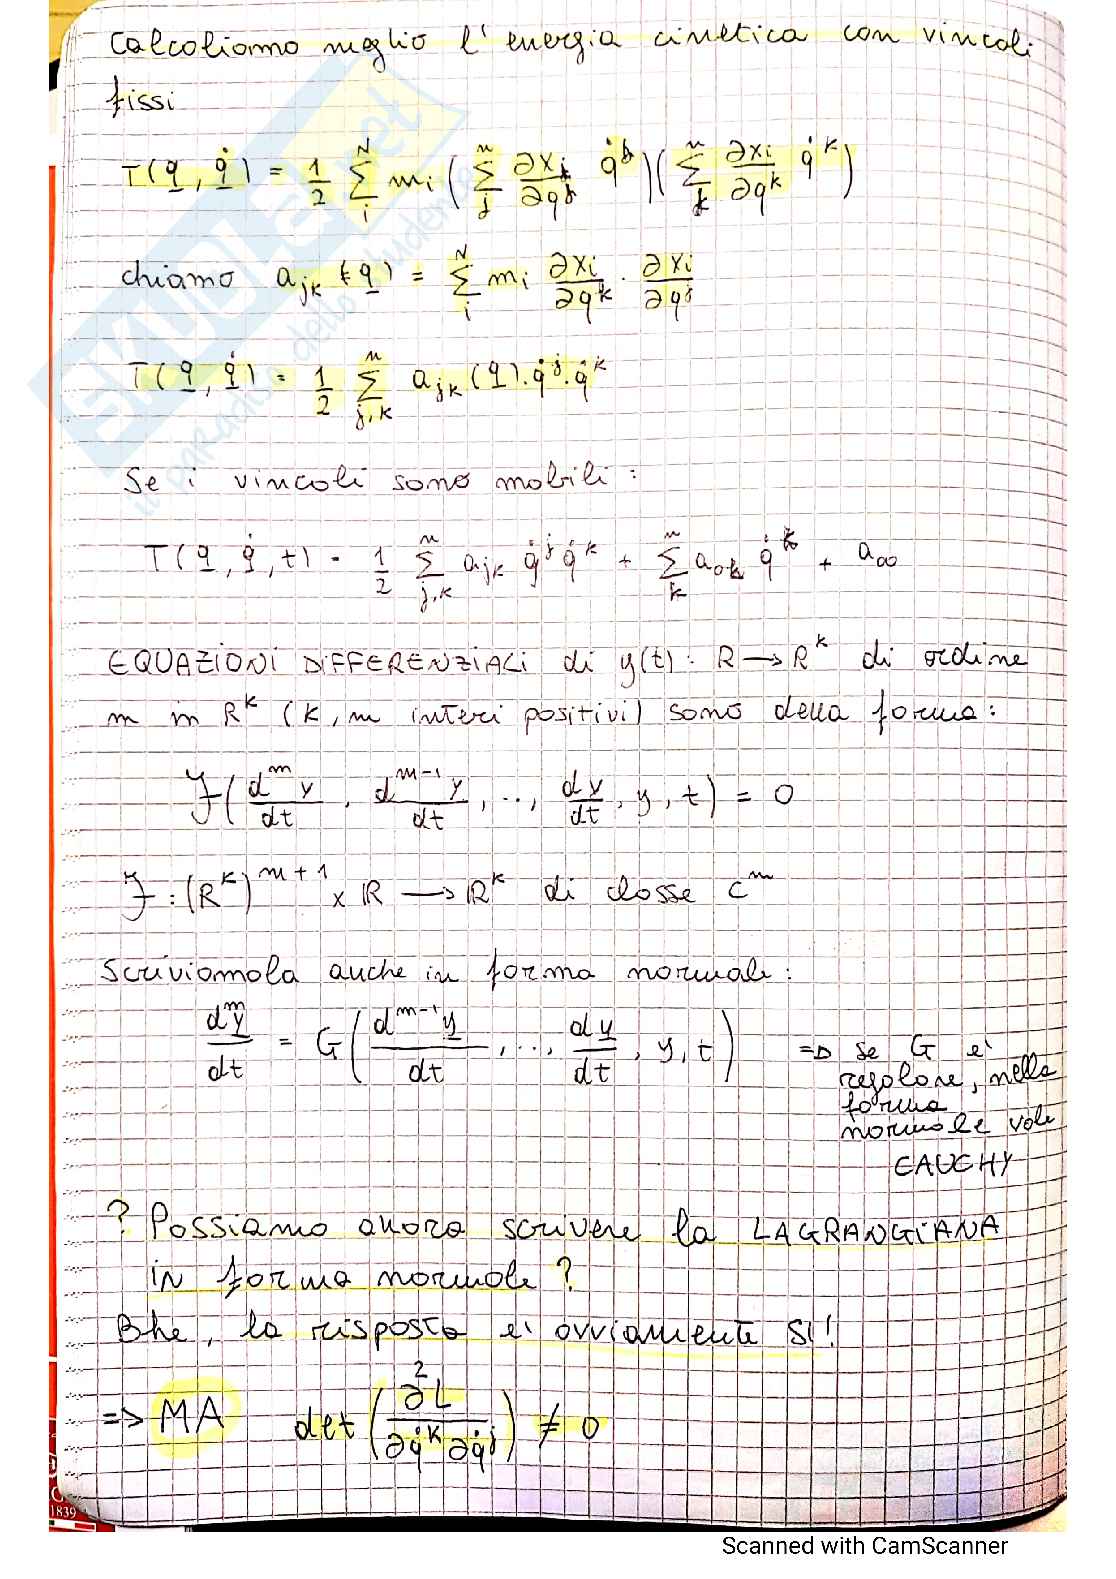 Calcoliamo meglio l'energia cinetica con vincoli
fissi
T(q, q̇) = 1/2 Σ_i^N m_i (Σ_j^n ∂x_i/∂q^j q̇^j)(Σ_k^n ∂x_i/∂q^k q̇^k)
chiamo a_jk (q) = Σ_i^N m_i ∂x_i/∂q^k · ∂x_i/∂q^j
T(q, q̇) = 1/2 Σ_{j,k}^n a_jk (q)·q̇^j·q̇^k
Se i vincoli sono mobili:
T(q, q̇, t) = 1/2 Σ_{j,k}^n a_jk q̇^j q̇^k + Σ_k^n a_0k q̇^k + a_00
EQUAZIONI DIFFERENZIALI di y(t): R → R^k di ordine
m in R^k (k, m interi positivi) sono della forma:
F(d^m y/dt, d^{m-1} y/dt, .., dy/dt, y, t) = 0
F : (R^k)^{m+1} x R → R^k di classe C^m
Scriviamola anche in forma normale:
d^m y/dt = G(d^{m-1} y/dt, .., dy/dt, y, t) => Se G e'
regolare, nella
forma
normale vale
CAUCHY
? Possiamo ancora scrivere la LAGRANGIANA
in forma normale?
Bhe, la risposta e' ovviamente SI!
=> MA det(∂²L/∂q̇^k ∂q̇^j) ≠ 0
SKUOLA.net
il paradiso dello studente
1839
Scanned with CamScanner